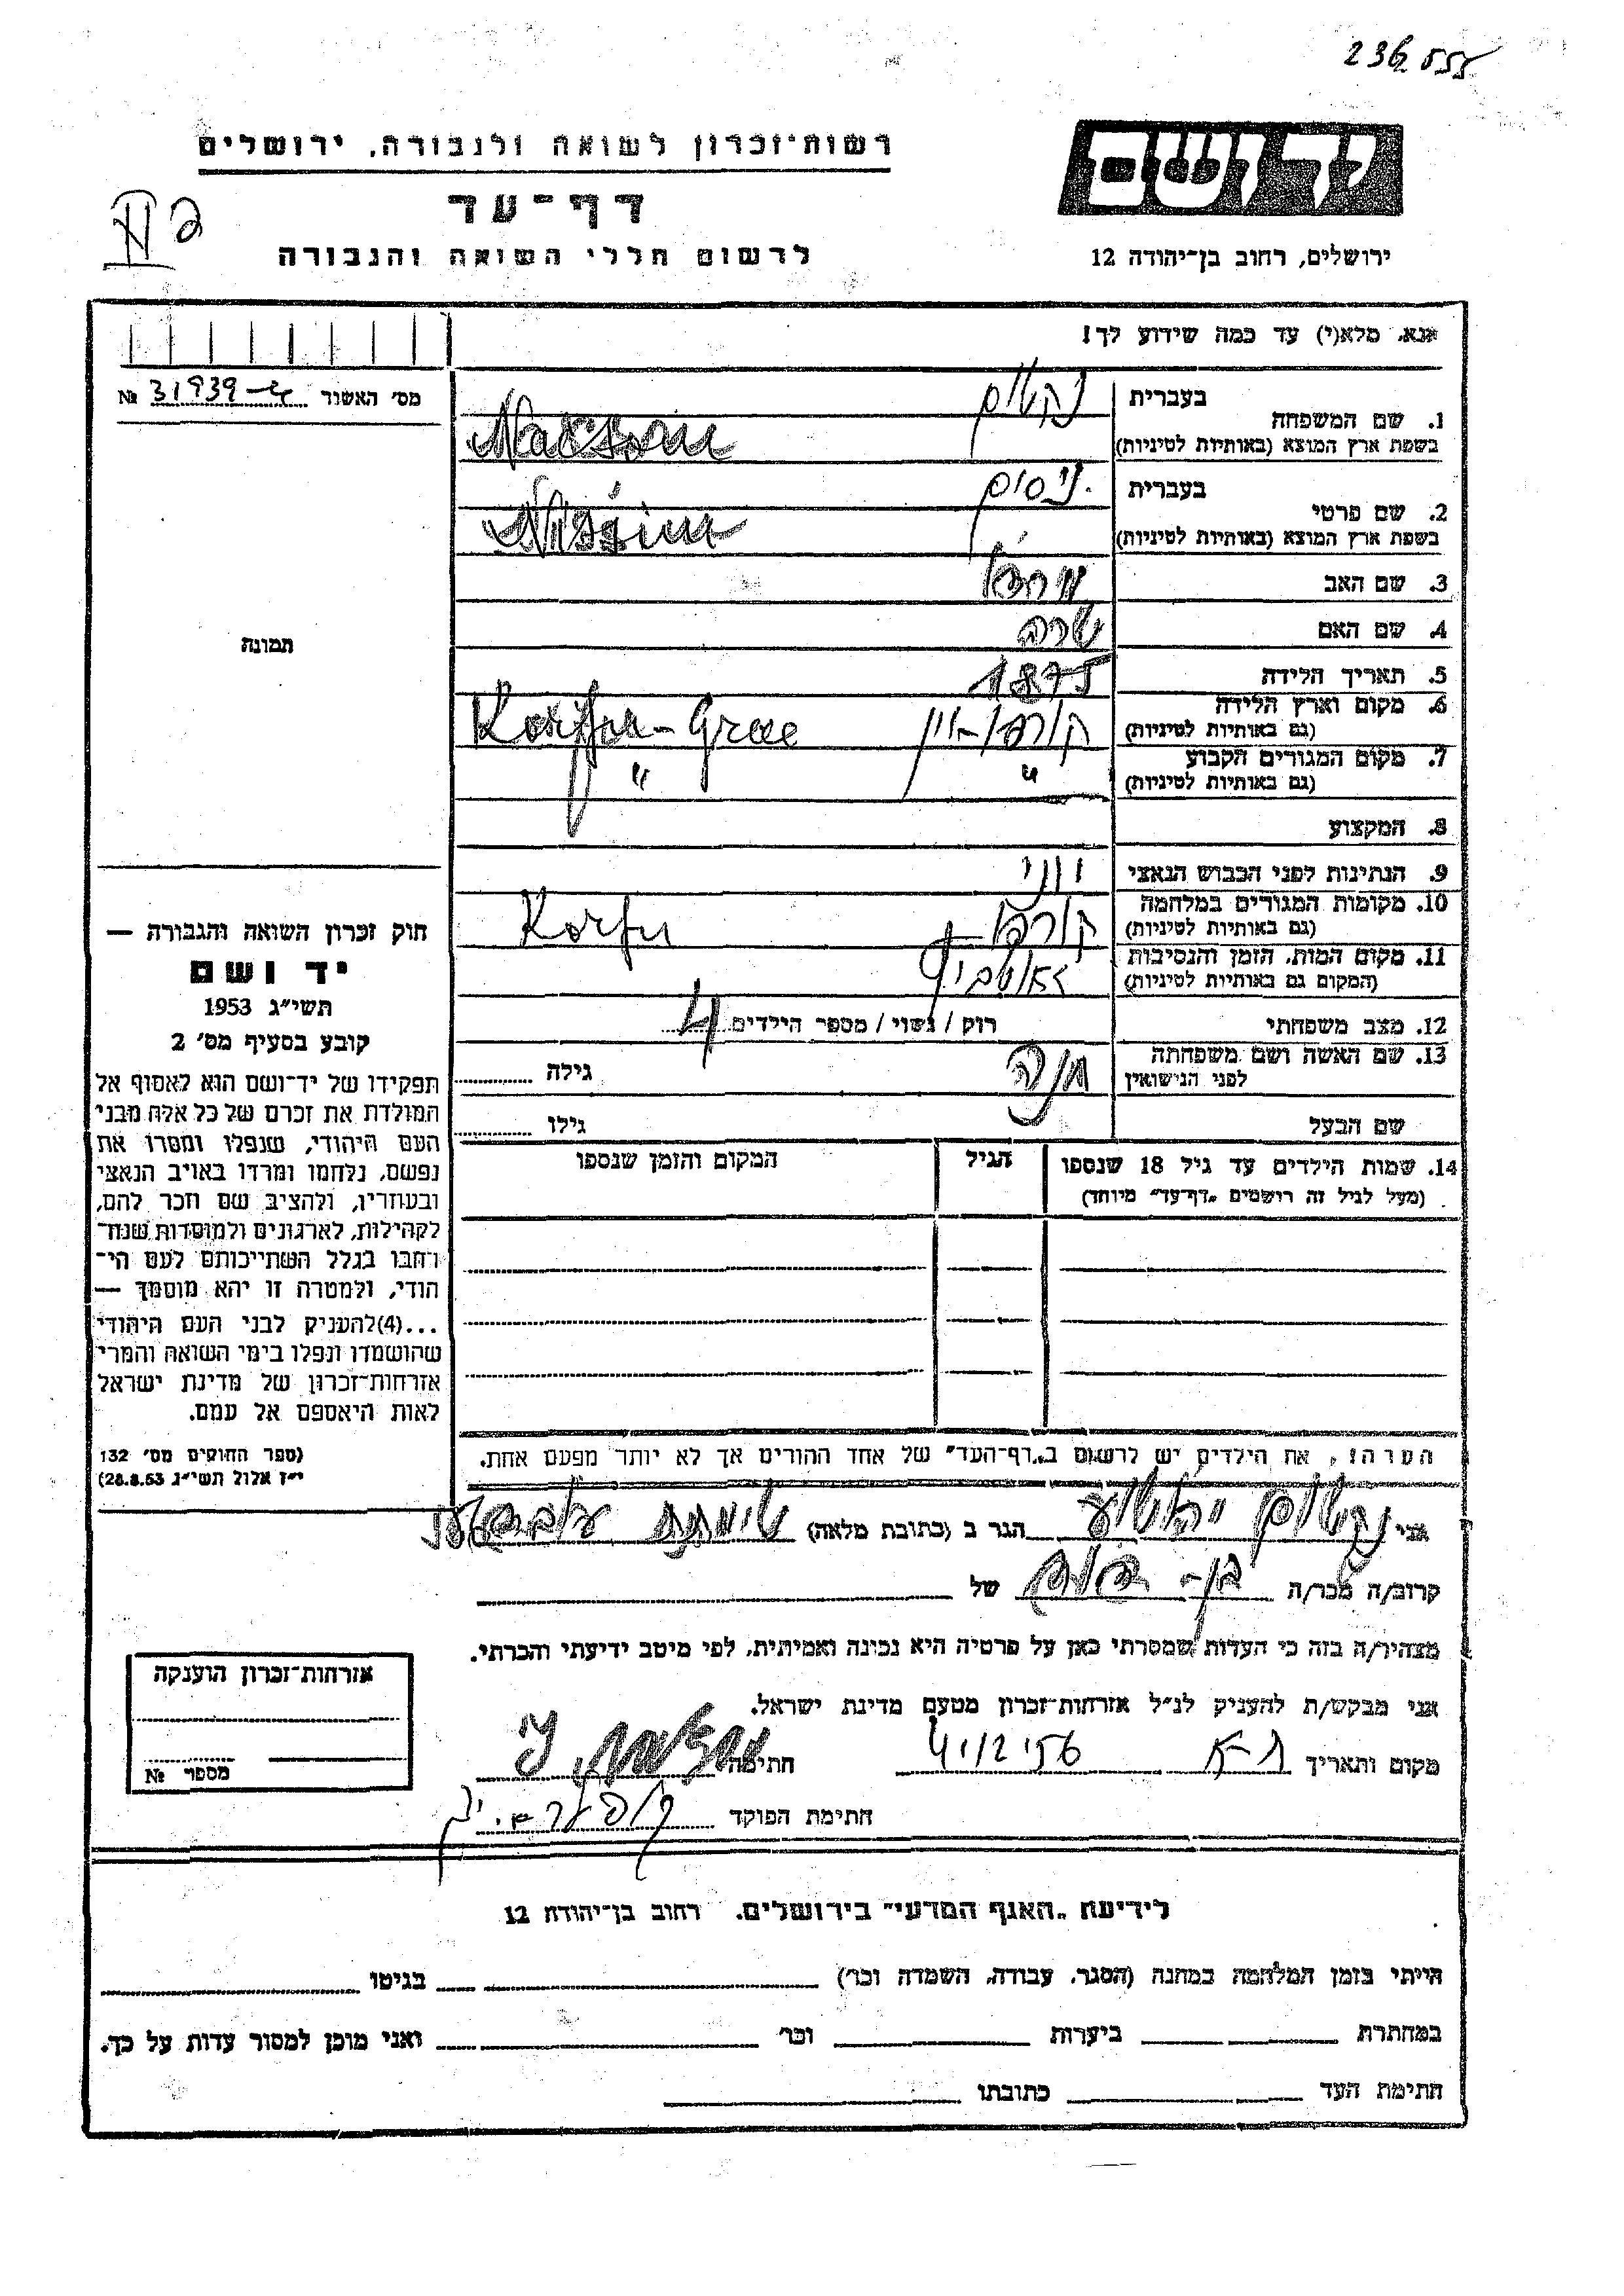 236555
רשות־זכרון לשואה ולגבורה, ירושלים
יד ושם
דף־עד
לרשום חללי השואה והגבורה
ירושלים, רחוב בן־יהודה 12
אנא, מלא(י) עד כמה שידוע לך!
מס׳ האשור 31939 №
1. שם המשפחה
בעברית נקשון
בשפת ארץ המוצא (באותיות לטיניות) Nacson
2. שם פרטי
בעברית ניסים
בשפת ארץ המוצא (באותיות לטיניות) Nissim
3. שם האב
4. שם האם שרה
5. תאריך הלידה 1875
6. מקום וארץ הלידה
(גם באותיות לטיניות) קורפו-יון Korfu-Grece
7. מקום המגורים הקבוע
(גם באותיות לטיניות) " "
8. המקצוע
9. הנתינות לפני הכבוש הנאצי יווני
10. מקומות המגורים במלחמה
(גם באותיות לטיניות) קורפו Korfu
11. מקום המות, הזמן והנסיבות
(המקום גם באותיות לטיניות)
12. מצב משפחתי רוק / נשוי / מספר הילדים 4
13. שם האשה ושם משפחתה
לפני הנישואין חנה גילה
שם הבעל גילו
14. שמות הילדים עד גיל 18 שנספו
(מעל לגיל זה רושמים „דף־עד״ מיוחד)
הגיל
המקום והזמן שנספו
תמונה
חוק זכרון השואה והגבורה —
יד ושם
תשי״ג 1953
קובע בסעיף מס׳ 2
תפקידו של יד־ושם הוא לאסוף אל
המולדת את זכרם של כל אלה מבני
העם היהודי, שנפלו ומסרו את
נפשם, נלחמו ומרדו באויב הנאצי
ובעוזריו, ולהציב שם וזכר להם,
לקהילות, לארגונים ולמוסדות שנח־
רחבו בגלל השתייכותם לעם הי־
הודי, ולמטרה זו יהא מוסמך —
...(4)להעניק לבני העם היהודי
שהושמדו ונפלו בימי השואה והמרי
אזרחות־זכרון של מדינת ישראל
לאות היאספם אל עמם.
(ספר החוקים מס׳ 132
י״ז אלול תשי״ג 28.8.53)
הערה: את הילדים יש לרשום ב„דף־העד״ של אחד ההורים אך לא יותר מפעם אחת.
אני נקשון יהושע הגר ב (כתובת מלאה) שיכון
קרוב/ה מכר/ה בן- של
מצהיר/ה בזה כי העדות שמסרתי כאן על פרטיה היא נכונה ואמיתית, לפי מיטב ידיעתי והכרתי.
אני מבקש/ת להעניק לנ״ל אזרחות־זכרון מטעם מדינת ישראל.
מקום ותאריך ת-א חתימה
חתימת הפוקד
אזרחות־זכרון הוענקה
מספר №
לידיעת „האגף המדעי״ בירושלים, רחוב בן־יהודה 12
הייתי בזמן המלחמה במחנה (הסגר, עבודה, השמדה וכר׳) בגיטו
במחתרת ביערות וכר׳ ואני מוכן למסור עדות על כך.
חתימת העד כתובתו